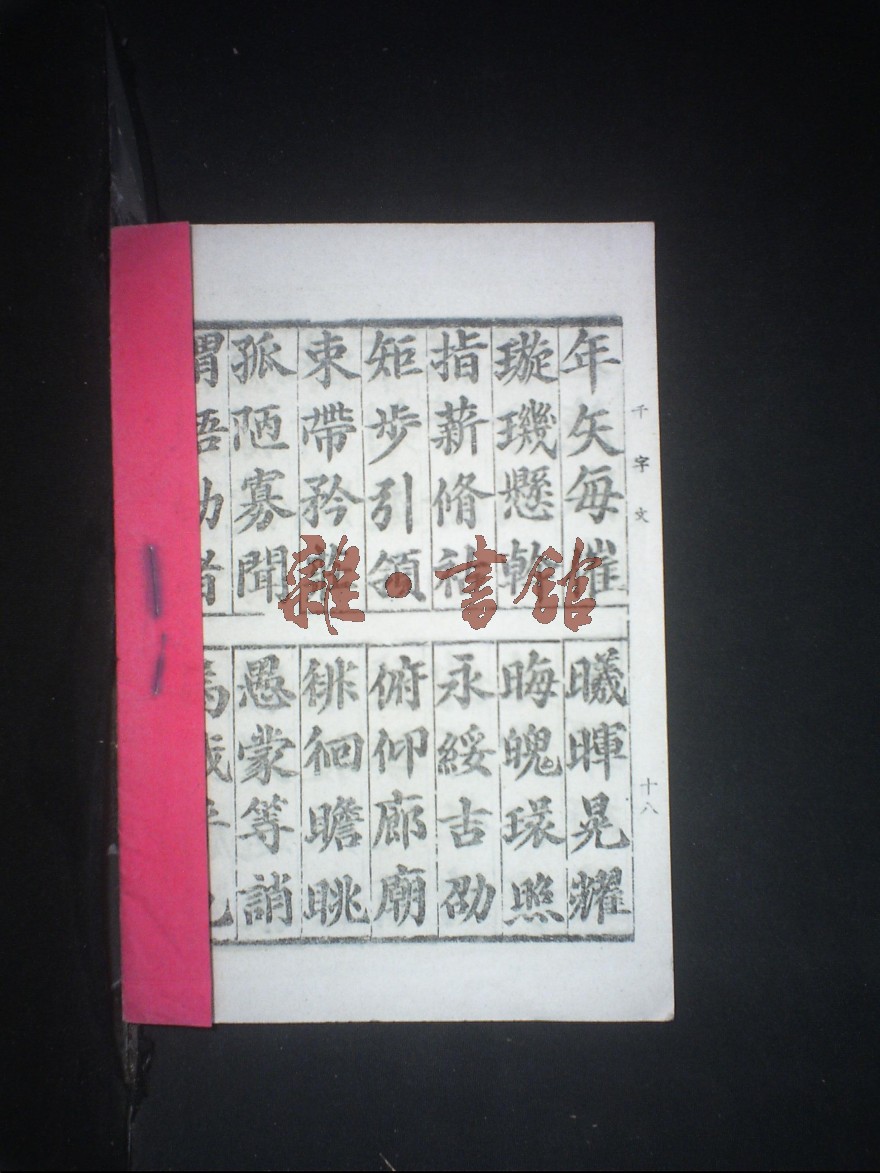 千字文
十八
年矢每催
曦暉晃耀
璇璣懸斡
晦魄環照
指薪脩祜
永綏古劭
矩步引領
俯仰廊廟
束帶矜莊
徘徊瞻眺
孤陋寡聞
愚蒙等誚
雜·書館